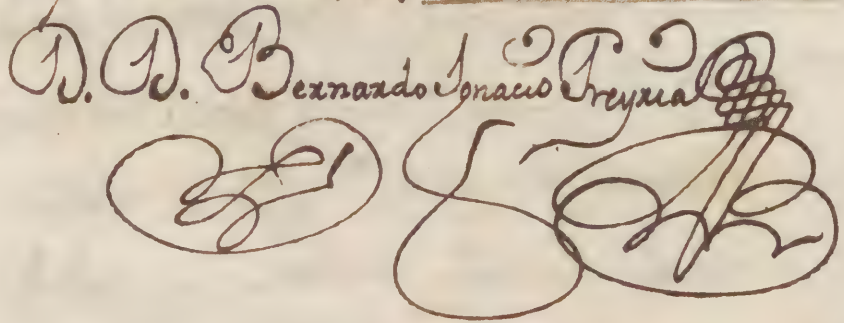 D. D. Bernardo Ignacio Freyria